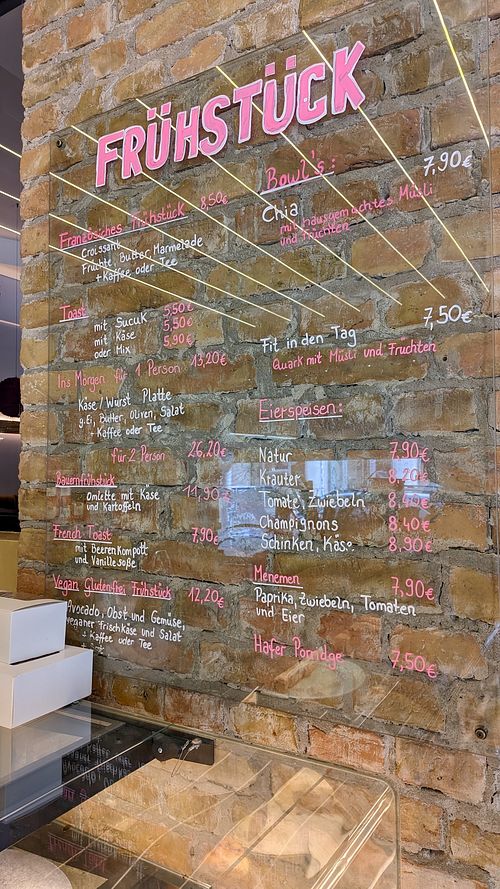 FRÜHSTÜCK
Französiches Frühstück 8,50€
Croissant
Früchte, Butter, Marmelade
+ Kaffee oder Tee
Toast
mit Sucuk 5,50€
mit Käse 5,50€
oder Mix 5,90€
Ins Morgen für 1 Person 13,20€
Käse/Wurst Platte
g.Ei, Butter, Oliven, Salat
+ Kaffee oder Tee
für 2 Person 26,20€
Bauernfrühstück 11,90€
Omlette mit Käse
und Kartoffeln
French Toast 7,90€
mit Beeren Kompott
und Vanillesoße
Vegan Glutenfrei Frühstück 12,20€
Avocado, Obst und Gemüse,
veganer Frischkäse und Salat
+ Kaffee oder Tee
Bowl's:
Chia 7,90€
mit hausgemachtes Müsli
und Früchten
Fit in den Tag 7,50€
Quark mit Müsli und Früchten
Eierspeisen:
Natur 7,90€
Kräuter 8,20€
Tomate, Zwiebeln 8,40€
Champignons 8,40€
Schinken, Käse 8,90€
Menemen 7,90€
Paprika, Zwiebeln, Tomaten
und Eier
Hafer Porridge 7,50€